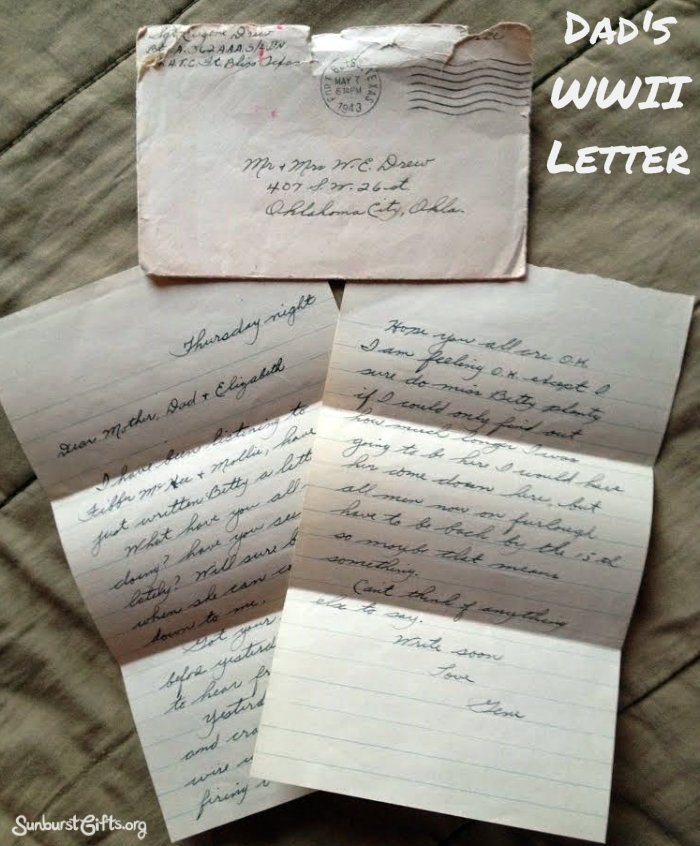 Dad's
WWII
Letter
Sgt Eugene Drew
Btry A. 362 AAA S/L BN
A.A.T.C. Ft. Bliss Texas
FORT BLISS, TEXAS
MAY 7
PM
1943
Mr & Mrs W. E. Drew
407 S W. 26 st.
Oklahoma City, Okla.
Thursday night
Dear Mother, Dad & Elizabeth
I have been listening to
Fibber McGee & Mollie, have
just written Betty a lett
What have you all
doing? have you see
lately? Will sure b
when she can co
down to me.
Got your
befor yesterda
to hear fr
Yesterd
and cra
wire
firing
Hope you all are O.K
I am feeling O.K. except I
sure do miss Betty plenty
if I could only find out
how much longer I was
going to be here I would have
her come down here, but
all men now on furlough
have to be back by the 15th
so maybe that means
something.
Can't think of anything
else to say.
Write soon
Love
Gene
SunburstGifts.org